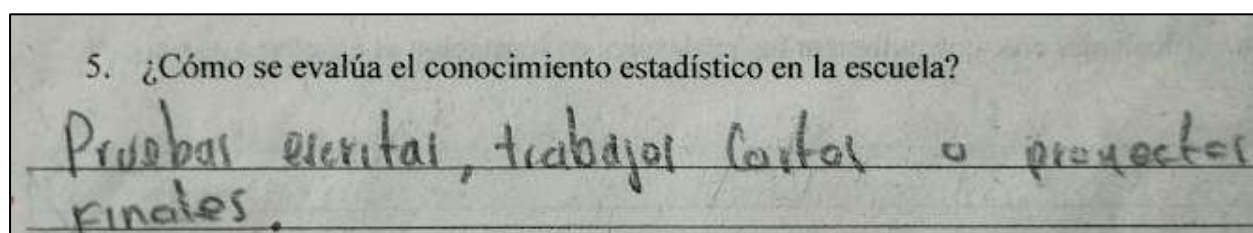 5. ¿Cómo se evalúa el conocimiento estadístico en la escuela?
Pruebas escritas, trabajos Cortos o proyectos
Finales.